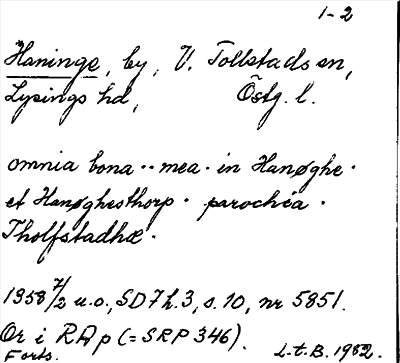 1-2
Haninge, by, V. Tollstads sn,
Lysings hd, Östg. l.
omnia bona ·· mea · in Hanøghe ·
et Hanøghesthorp · parochia ·
Tholfstadhæ ·
1358 7/2 u.o., SD 7 h.3, s. 10, nr 5851.
Or i RAp (= SRP 346).
Forts. L.t.B. 1982.